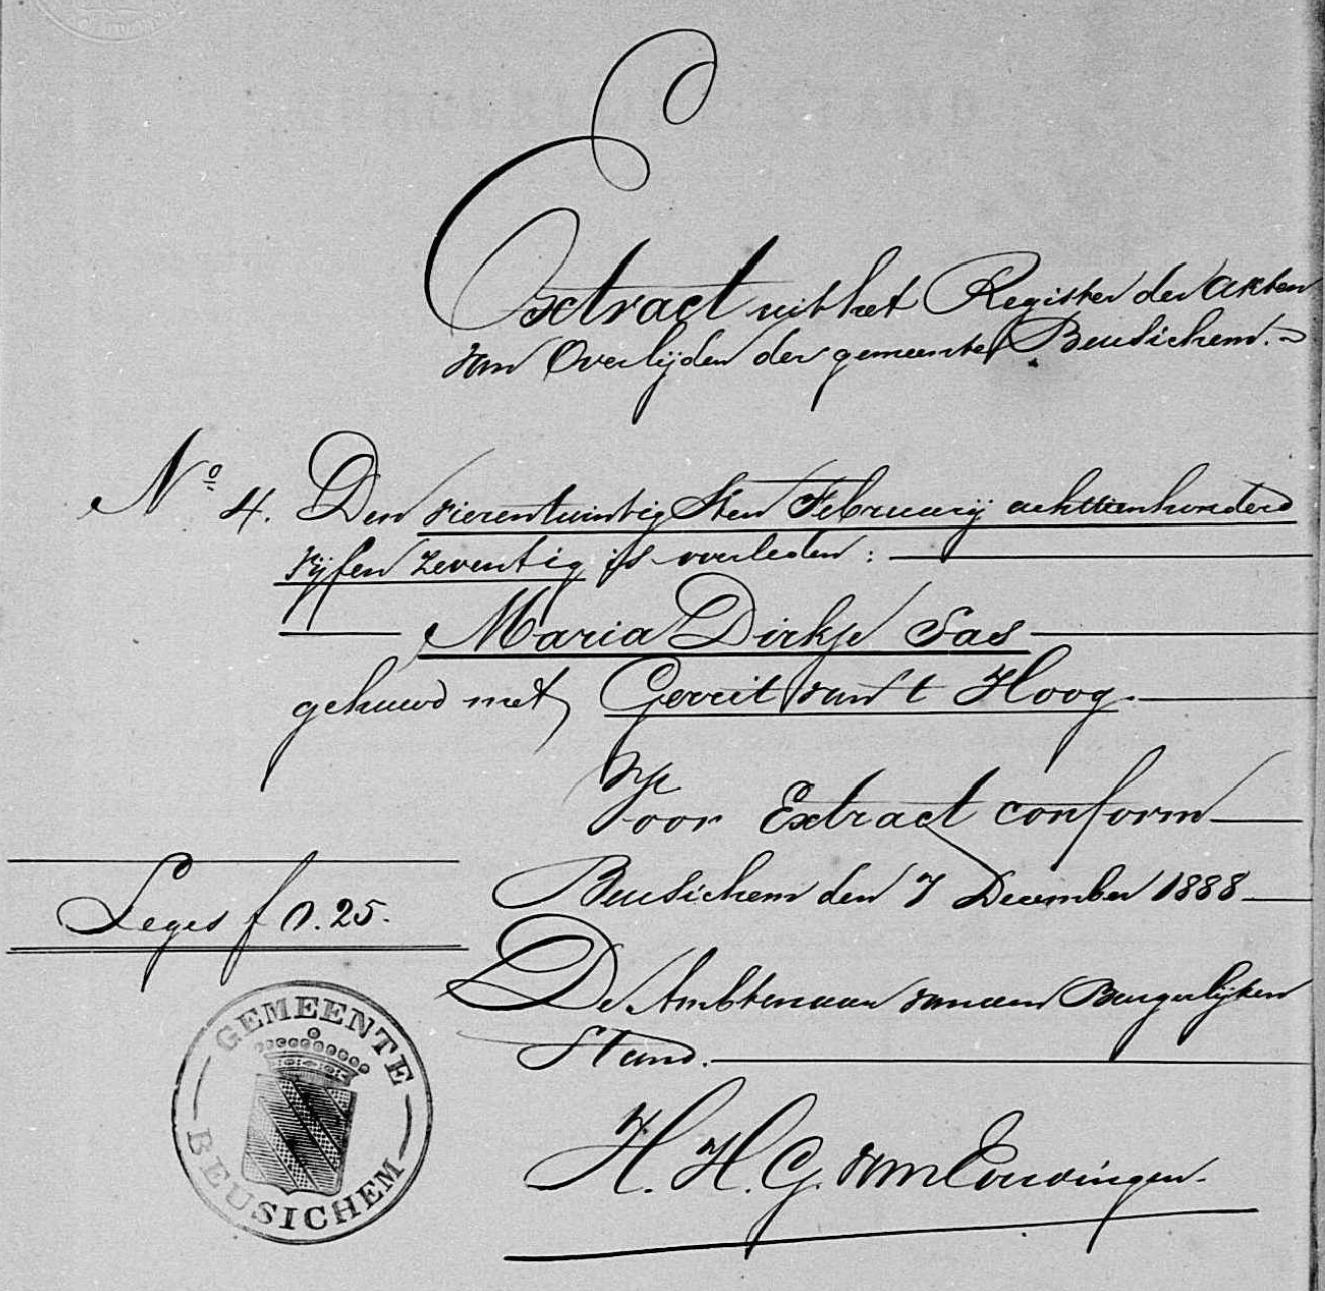 Extract uit het Register der Akten
van Overlijden der gemeente Beusichem.
No 4. Den vierentwintigsten Februarij achttienhonderd
vijfenzeventig is overleden:
Maria Dirkje Sas
gehuwd met Gerrit van 't Hoog.
Voor Extract conform
Beusichem den 7 December 1888
Leges f 0.25.
De Ambtenaar van den Burgerlijken
Stand.
H. H. G. van
GEMEENTE
BEUSICHEM